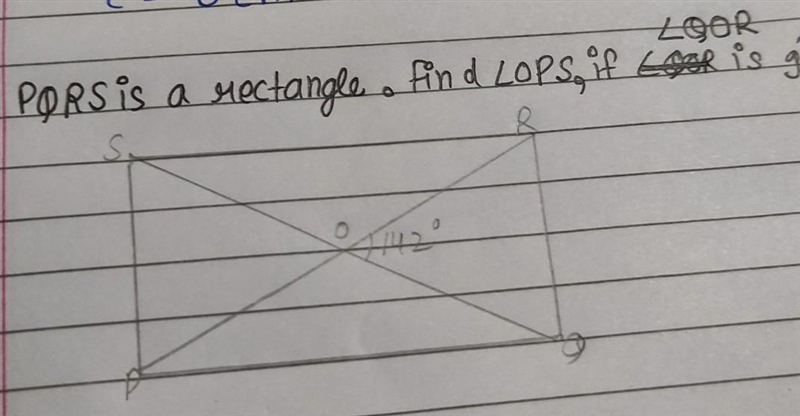 ∠QOR
PQRS is a rectangle. Find ∠OPS, if is
S R
O 142°
P Q